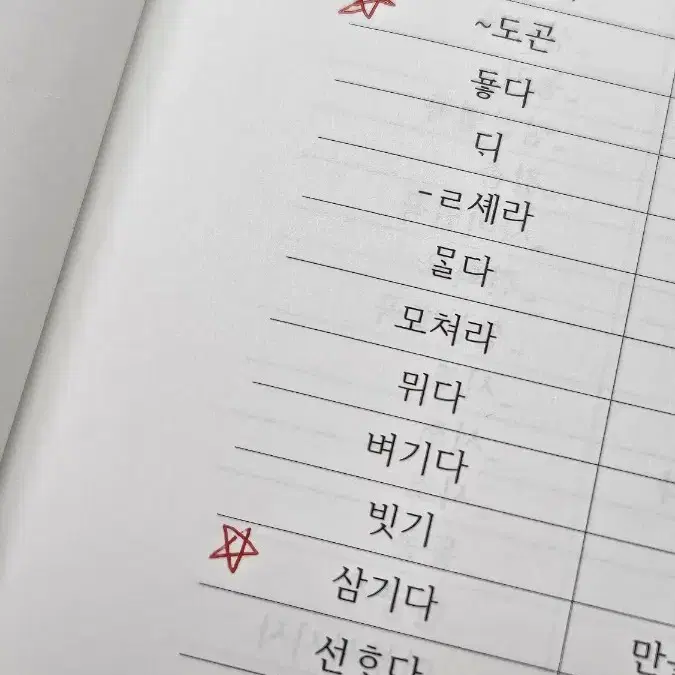 ~도곤
둏다
ᄃᆡ
-ㄹ셰라
ᄆᆞᆯ다
모쳐라
뮈다
벼기다
빗기
삼기다
만
션ᄒᆞ다